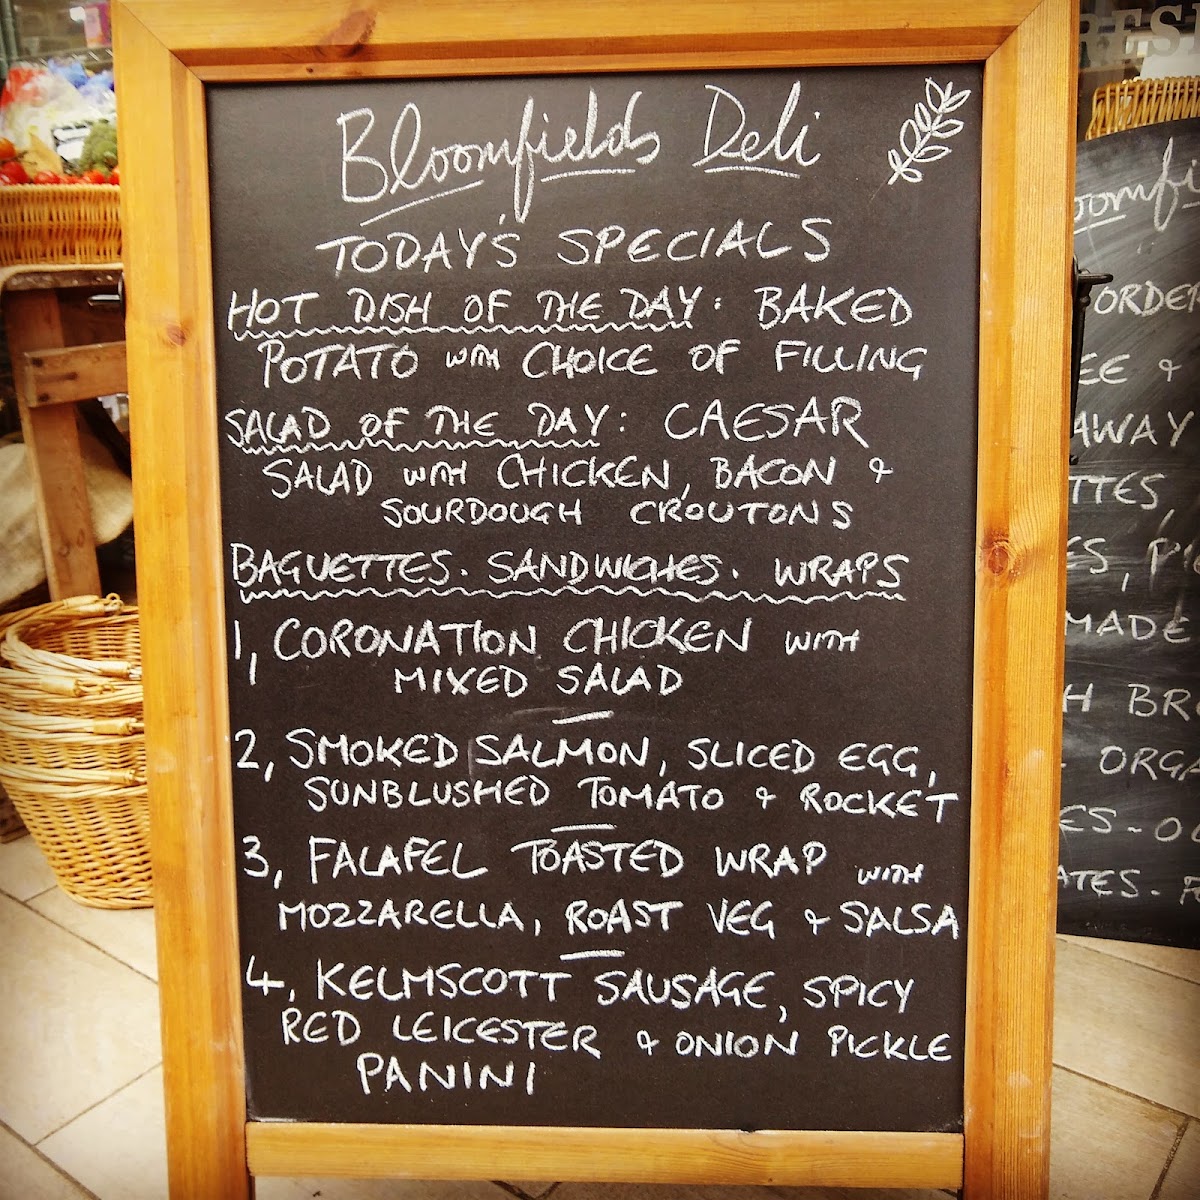 Bloomfields Deli
TODAY'S SPECIALS
HOT DISH OF THE DAY: BAKED
POTATO WITH CHOICE OF FILLING
SALAD OF THE DAY: CAESAR
SALAD WITH CHICKEN, BACON &
SOURDOUGH CROUTONS
BAGUETTES. SANDWICHES. WRAPS
1, CORONATION CHICKEN WITH
MIXED SALAD
2, SMOKED SALMON, SLICED EGG,
SUNBLUSHED TOMATO & ROCKET
3, FALAFEL TOASTED WRAP WITH
MOZZARELLA, ROAST VEG & SALSA
4, KELMSCOTT SAUSAGE, SPICY
RED LEICESTER & ONION PICKLE
PANINI
RES
oomfi
ORDE
EE &
AWAY
TTES,
ES, PI
MADE
H BR
ORGA
ES - O
ATES.